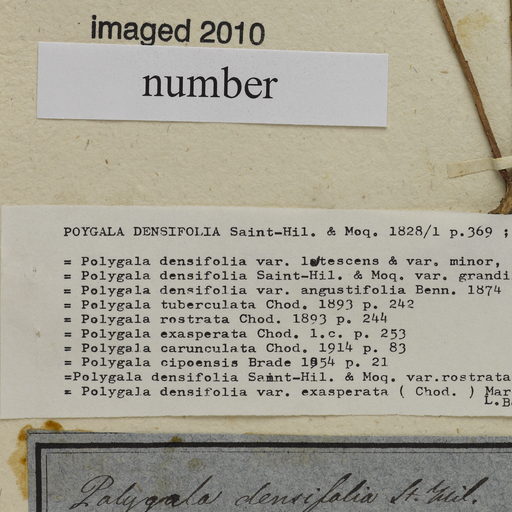 imaged 2010
number
POYGALA DENSIFOLIA Saint-Hil. & Moq. 1828/1 p.369 ;
= Polygala densifolia var. lutescens & var. minor,
= Polygala densifolia Saint-Hil. & Moq. var. grandi
= Polygala densifolia var. angustifolia Benn. 1874
= Polygala tuberculata Chod. 1893 p. 242
= Polygala rostrata Chod. 1893 p. 244
= Polygala exasperata Chod. l.c. p. 253
= Polygala carunculata Chod. 1914 p. 83
= Polygala cipoensis Brade 1954 p. 21
=Polygala densifolia Saint-Hil. & Moq. var.rostrata
= Polygala densifolia var. exasperata ( Chod. ) Mar
L.B
Polygala densifolia St. Hil.